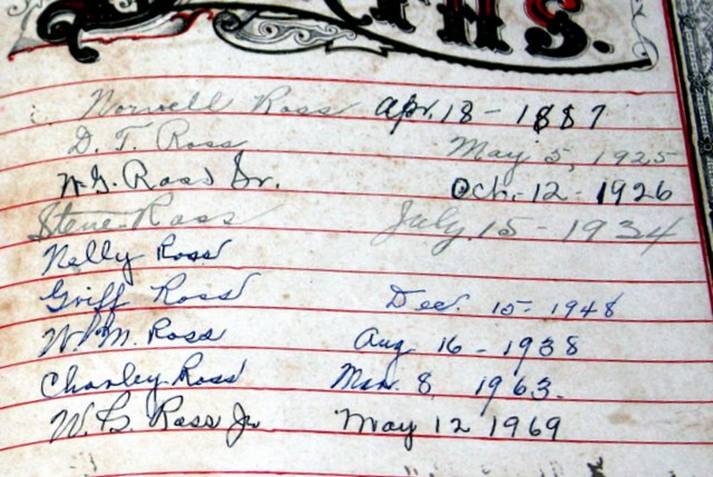 Norvell Ross Apr. 18 - 1887
D. T. Ross May 5, 1925
W. G. Ross Sr. Oct. 12 - 1926
Steve Ross July 15 - 1934
Nelly Ross
Griff Ross Dec. 15 - 1948
W. M. Ross Aug 16 - 1938
Charley Ross Mar. 8, 1963.
W. G. Ross Jr May 12 1969